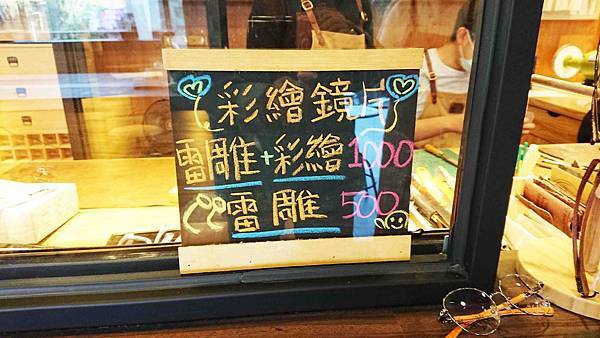 彩繪鏡片
雷雕+彩繪1000
雷雕 500